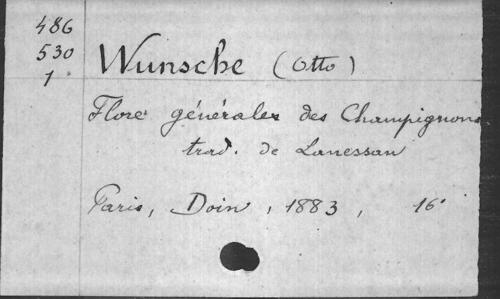 486
530
1
Wunsche (Otto)
Flore générale des Champignons
trad. de Lanessan
Paris, Doin, 1883, 16°